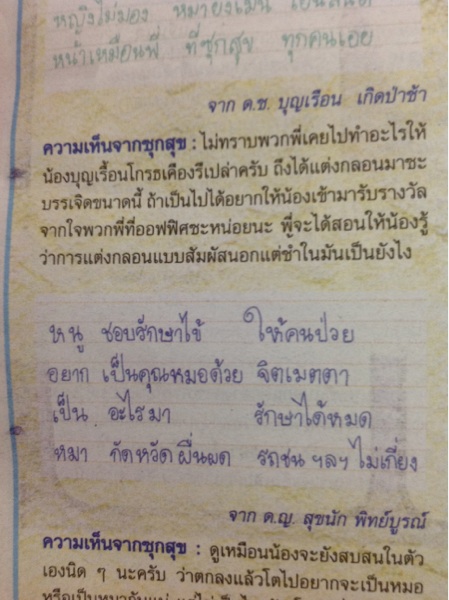 หญิงไม่มอง หมายังเมิน เอ็นสนิท
หน้าเหมือนพี่ ที่ซุกสุข ทุกคนเอย
จาก ด.ช. บุญเรือน เกิดป่าช้า
ความเห็นจากซุกสุข : ไม่ทราบพวกพี่เคยไปทำอะไรให้
น้องบุญเรื้อนโกรธเคืองรึเปล่าครับ ถึงได้แต่งกลอนมาซะ
บรรเจิดขนาดนี้ ถ้าเป็นไปได้อยากให้น้องเข้ามารับรางวัล
จากใจพวกพี่ที่ออฟฟิศซะหน่อยนะ พี่จะได้สอนให้น้องรู้
ว่าการแต่งกลอนแบบสัมผัสนอกแต่ช้ำในมันเป็นยังไง
หนู ชอบรักษาไข้ ให้คนป่วย
อยาก เป็นคุณหมอด้วย จิตเมตตา
เป็น อะไรมา รักษาได้หมด
หมา กัดหวัด ผื่นผด รถชน ฯลฯ ไม่เกี่ยง
จาก ด.ญ. สุขนัก พิทย์บูรณ์
ความเห็นจากซุกสุข : ดูเหมือนน้องจะยังสบสนในตัว
เองนิด ๆ นะครับ ว่าตกลงแล้วโตไปอยากจะเป็นหมอ